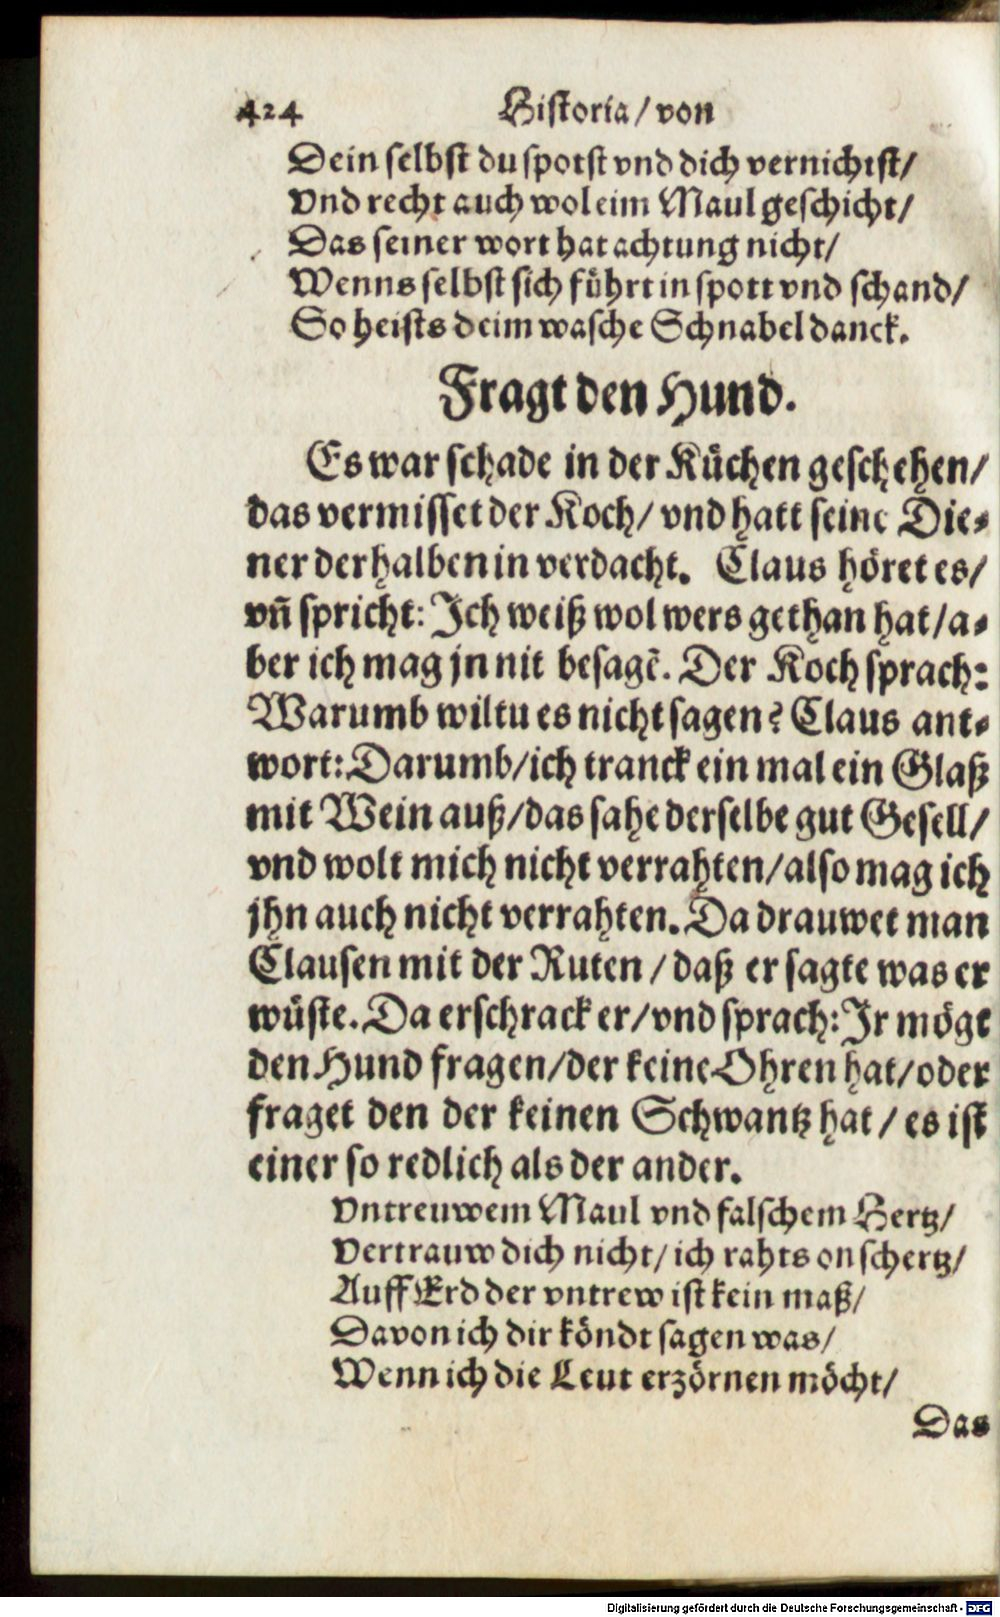 424 Historia / von
Dein selbst du spotst vnd dich vernichtst /
Vnd recht auch wol eim Maul geschicht /
Das seiner wort hat achtung nicht /
Wenns selbst sich führt in spott vnd schand /
So heists deim wasche Schnabel danck.
Fragt den Hund.
Es war schade in der Küchen geschehen /
das vermisset der Koch / vnd hatt seine Die⸗
ner derhalben in verdacht. Claus höret es /
vñ spricht: Ich weiß wol wers gethan hat / a⸗
ber ich mag jn nit besagē. Der Koch sprach:
Warumb wiltu es nicht sagen? Claus ant⸗
wort: Darumb / ich tranck ein mal ein Glaß
mit Wein auß / das sahe derselbe gut Gesell /
vnd wolt mich nicht verrahten / also mag ich
jhn auch nicht verrahten. Da drauwet man
Clausen mit der Ruten / daß er sagte was er
wüste. Da erschrack er / vnd sprach: Ir mögt
den Hund fragen / der keine Ohren hat / oder
fraget den der keinen Schwantz hat / es ist
einer so redlich als der ander.
Vntreuwem Maul vnd falschem Hertz /
Vertrauw dich nicht / ich rahts on schertz /
Auff Erd der vntrew ist kein maß /
Davon ich dir köndt sagen was /
Wenn ich die Leut erzörnen möcht /
Das
Digitalisierung gefördert durch die Deutsche Forschungsgemeinschaft - DFG